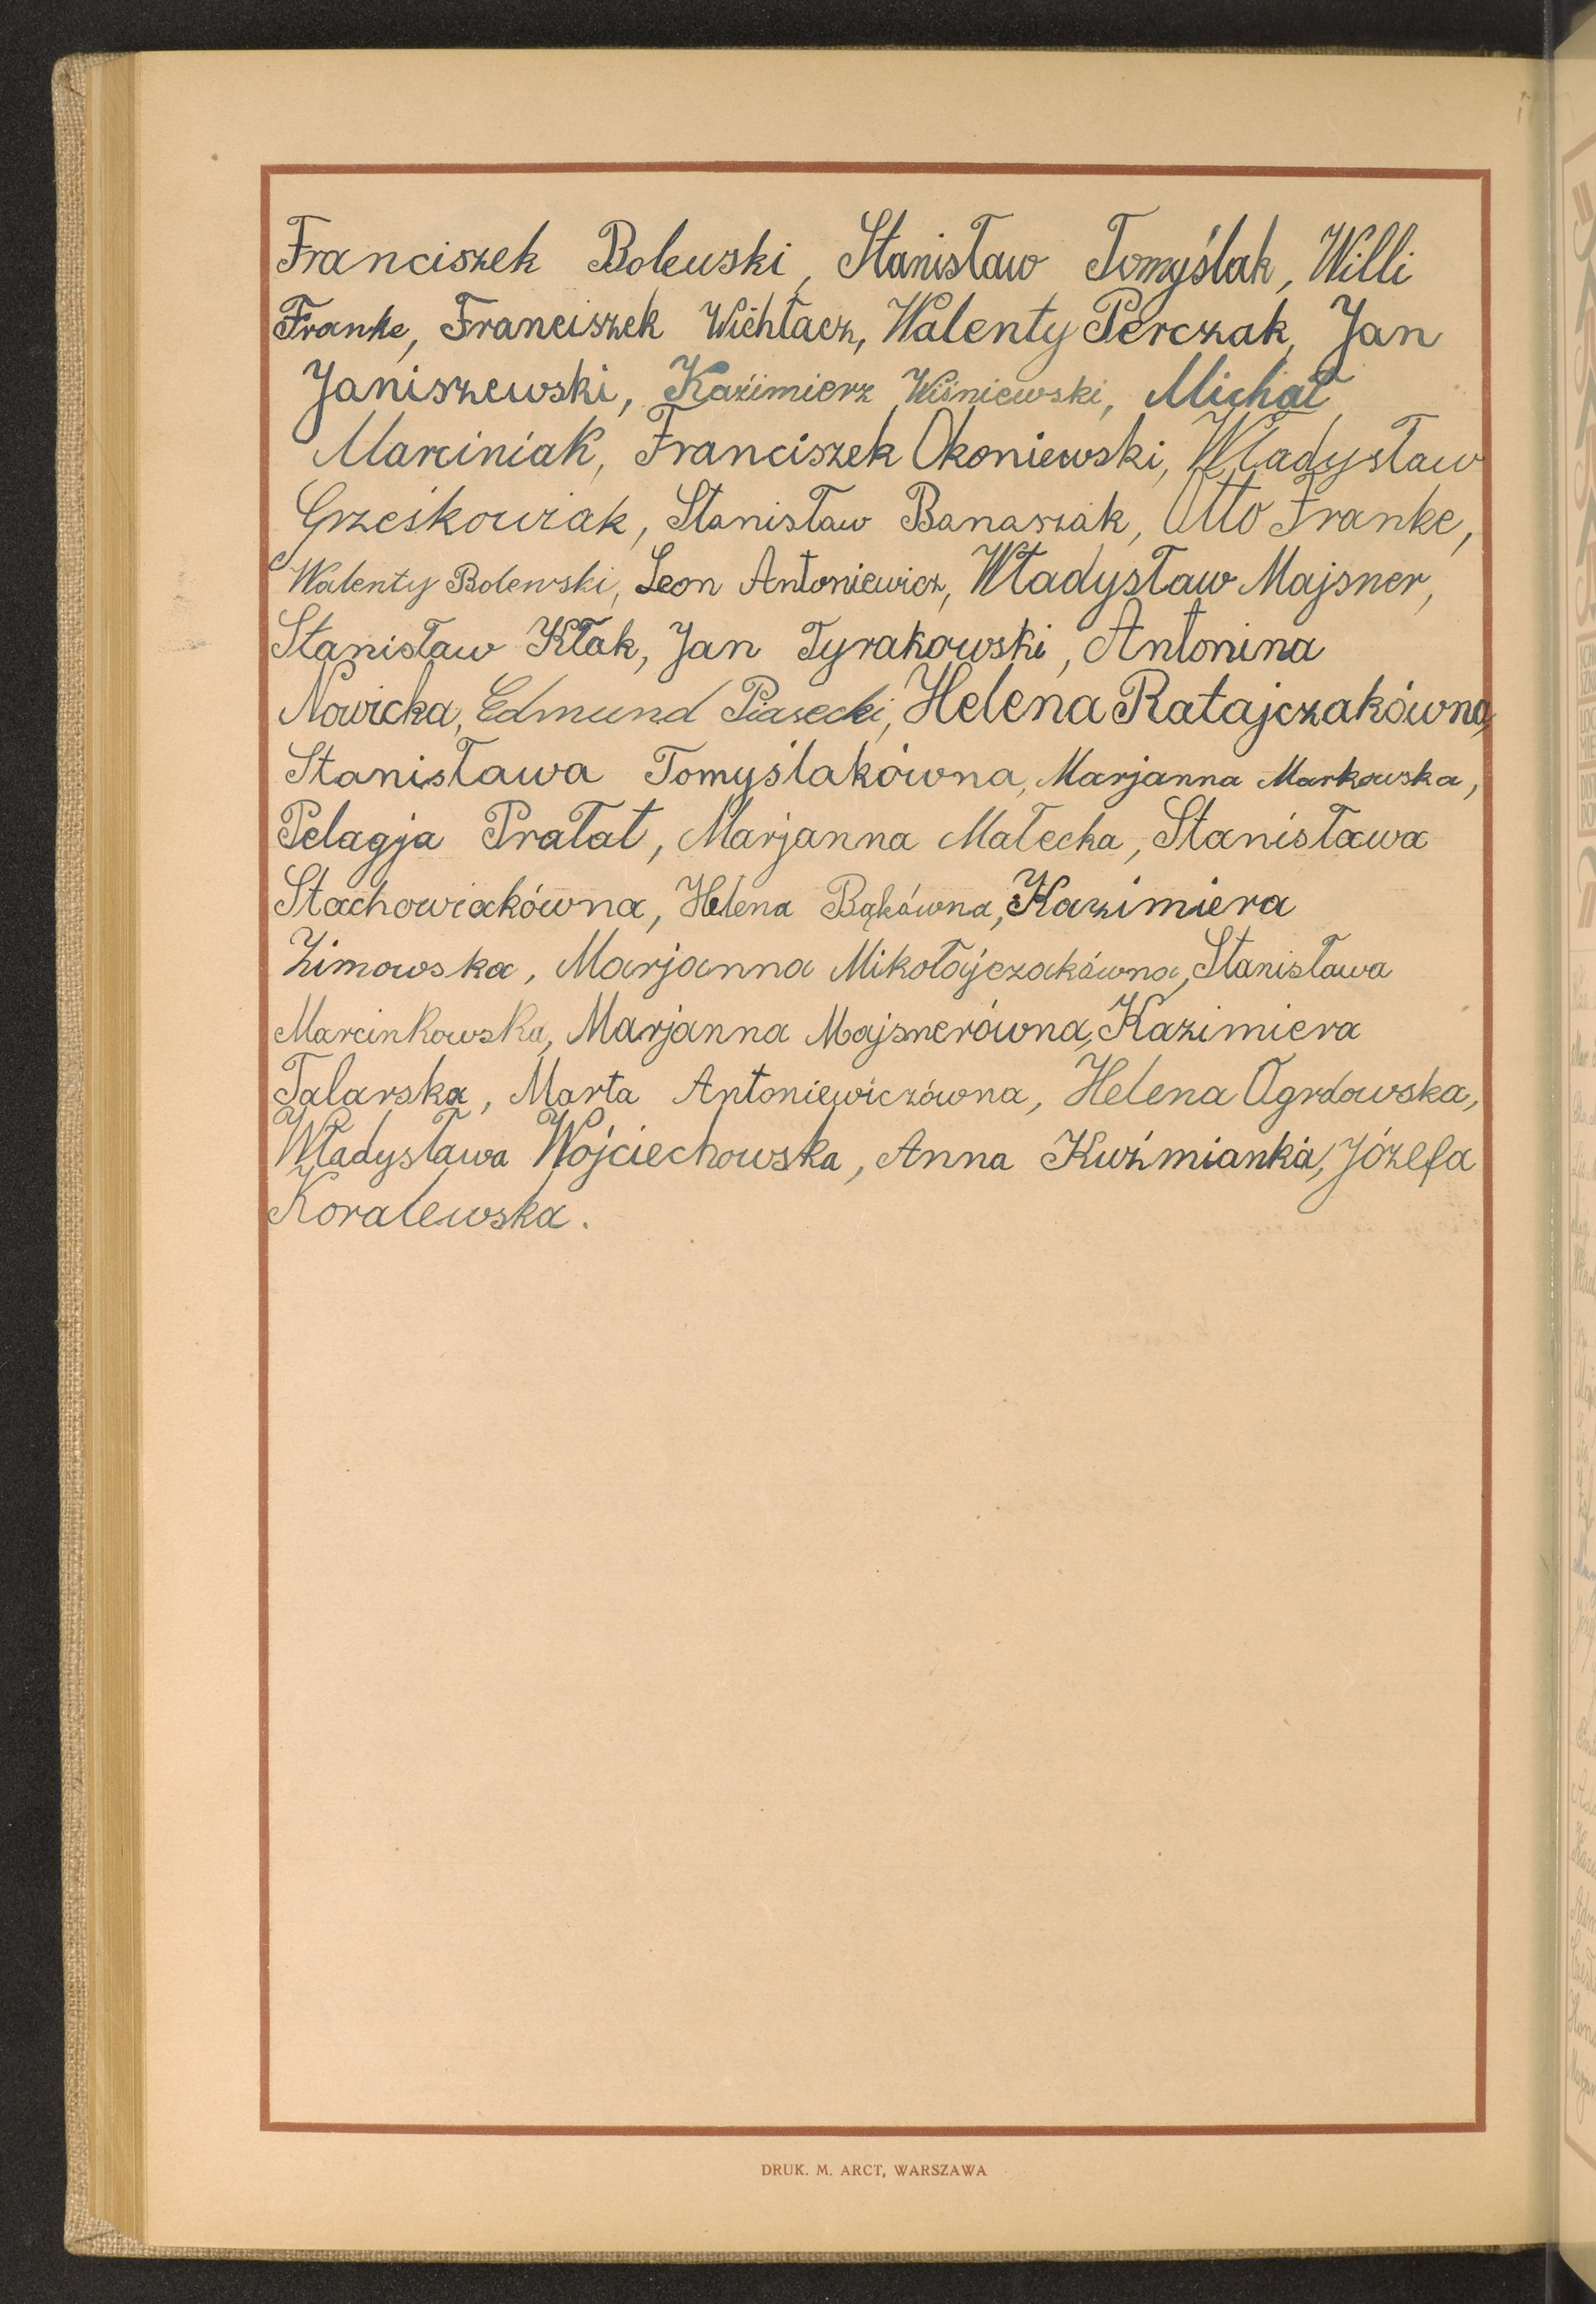 Franciszek Bolewski, Stanisław Tomyślak, Willi
Franke, Franciszek Wichłacz, Walenty Perczak, Jan
Janiszewski, Kazimierz Wiśniewski, Michał
Marciniak, Franciszek Okoniewski, Władysław
Grześkowiak, Stanisław Banaszak, Otto Franke,
Walenty Bolewski, Leon Antoniewicz, Władysław Majsner,
Stanisław Kłak, Jan Tyrakowski, Antonina
Nowicka, Edmund Piasecki, Helena Ratajczakówna,
Stanisława Tomyślakówna, Marjanna Markowska,
Pelagja Prałat, Marjanna Małecka, Stanisława
Stachowiakówna, Helena Bąkówna, Kazimiera
Zimowska, Marjanna Mikołajczakówna, Stanisława
Marcinkowska, Marjanna Majsnerówna, Kazimiera
Talarska, Marta Antoniewiczówna, Helena Ogrdowska,
Władysława Wojciechowska, Anna Kuźmianka, Józefa
Koralewska.
DRUK. M. ARCT, WARSZAWA